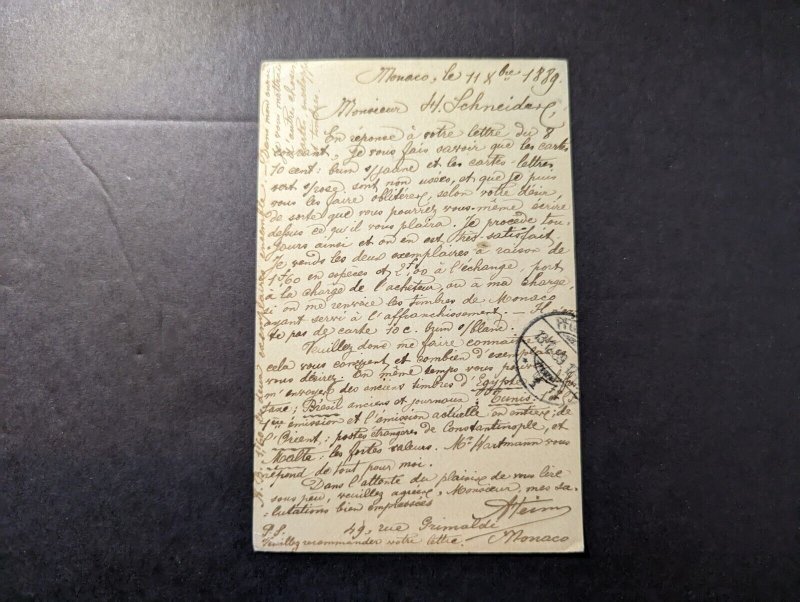 Monaco, le 11 Xbre 1889.
Monsieur H. Schneider,
En réponse à votre lettre du 8
courant. Je vous fais savoir que les cartes
10 cent: brun s/jaune et les cartes-lettres
vert s/rose sont non usées, et que je puis
vous les faire oblitérer, selon votre désir,
de sorte que vous pourrez vous-même écrire
dessus ce qu'il vous plaira. Je procède tou-
jours ainsi et on en est très satisfait.
Je vends les deux exemplaires à raison de
1f60 en espèces et 2f,00 à l'échange, port
à la charge de l'acheteur, ou à ma charge
si on me renvoie les timbres de Monaco
ayant servi à l'affranchissement.
te pas de carte 10 c. brun s/blanc.
Veuillez donc me faire connaître
cela vous convient et combien d'exempl
vous désirez. En même temps vous
m'envoyer des anciens timbres d'Egypte
Brésil anciens et journaux; Tunis:
1ère émission et l'émission actuelle en entier; de
l'Orient; postes étrangères de Constantinople, et
Malte: les fortes valeurs. Mr Hartmann vous
répond de tout pour moi.
Dans l'attente du plaisir de vous lire
sous peu, veuillez agréer, Monsieur, mes sa-
lutations bien empressées
49, rue Grimaldi
Monaco
Veuillez recommander votre lettre.